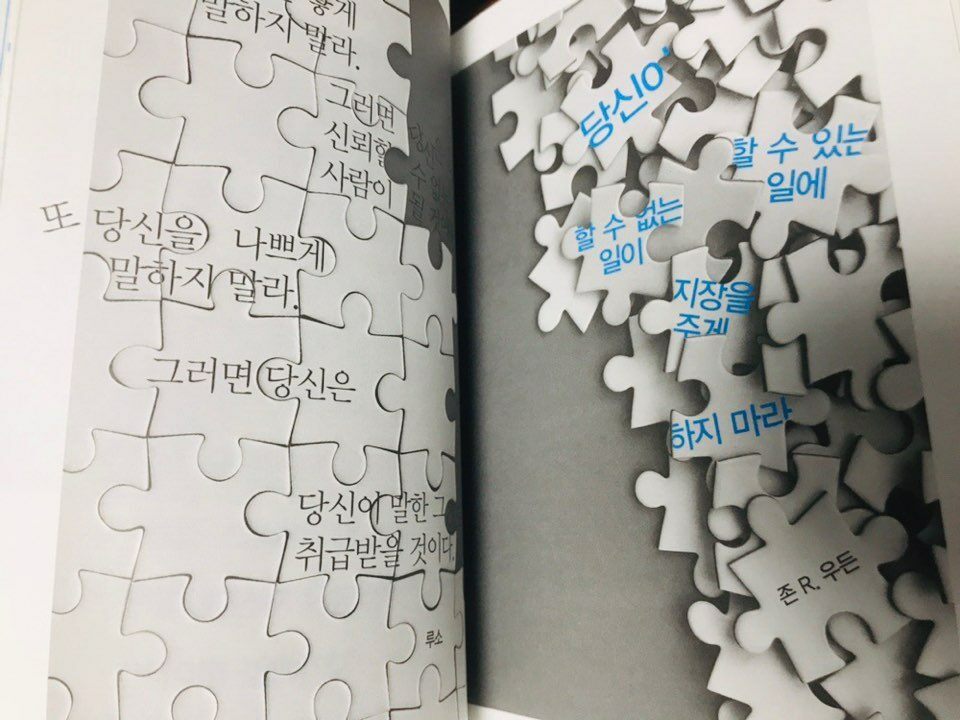 좋게
말하지 말라.
그러면
신뢰할
사람이
당신
수 없
될
또 당신을 나쁘게
말하지 말라.
그러면 당신은
당신이 말한 그
취급받을 것이다.
루소
당신이
할 수 있는
일에
할 수 없는
일이
지장을
주게
하지 마라
존 R. 우든